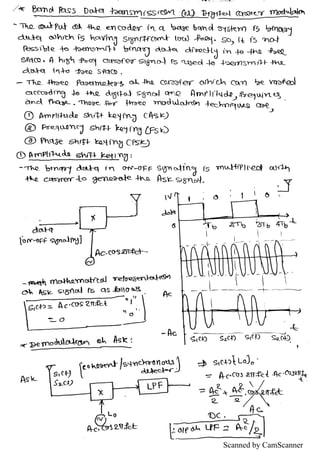 * Band Pass Data transmission (or) Digital carrier modulation
- The output of the encoder in a base band system is binary
data which is having significant low freq. so, it is not
Possible to transmit binary data directly in to the free
space. A high freq carrier signal is used to transmit the
data into free space.
- The three Parameters of the carrier which can be varied
according to the digital signal are Amplitude, frequency
and Phase. There for three modulation techniques are,
① Amplitude shift keying (ASK)
② Frequency shift keying (FSK)
③ Phase shift keying (PSK)
① Amplitude shift keying:
- The binary data in ON-OFF signaling is multiplied with
the carrier to generate the ASK signal.
1V
1 0 1 0
data
0 Tb 2Tb 3Tb 4Tb t
X
data
[ON-OFF signaling]
Ac.cos2πfct
- mathematical representation
of ASK signal is as follows.
S1(t) = Ac.cos2πfct "1"
= 0 "0"
Ac
-Ac
t
S1(t) S2(t) S1(t) S2(t)
* Demodulation of ASK:
[coherent / synchronous detector]
ASK
S1(t)
S2(t)
X
LPF
Lo
Ac.cos2πfct
⇒ S1(t) Lo
= Ac.cos2πfct Ac.cos2πfct
= Ac²/2 + Ac²/2 .cos2πfct
DC. AC
∴ o/p of LPF = Ac²/2
Scanned by CamScanner